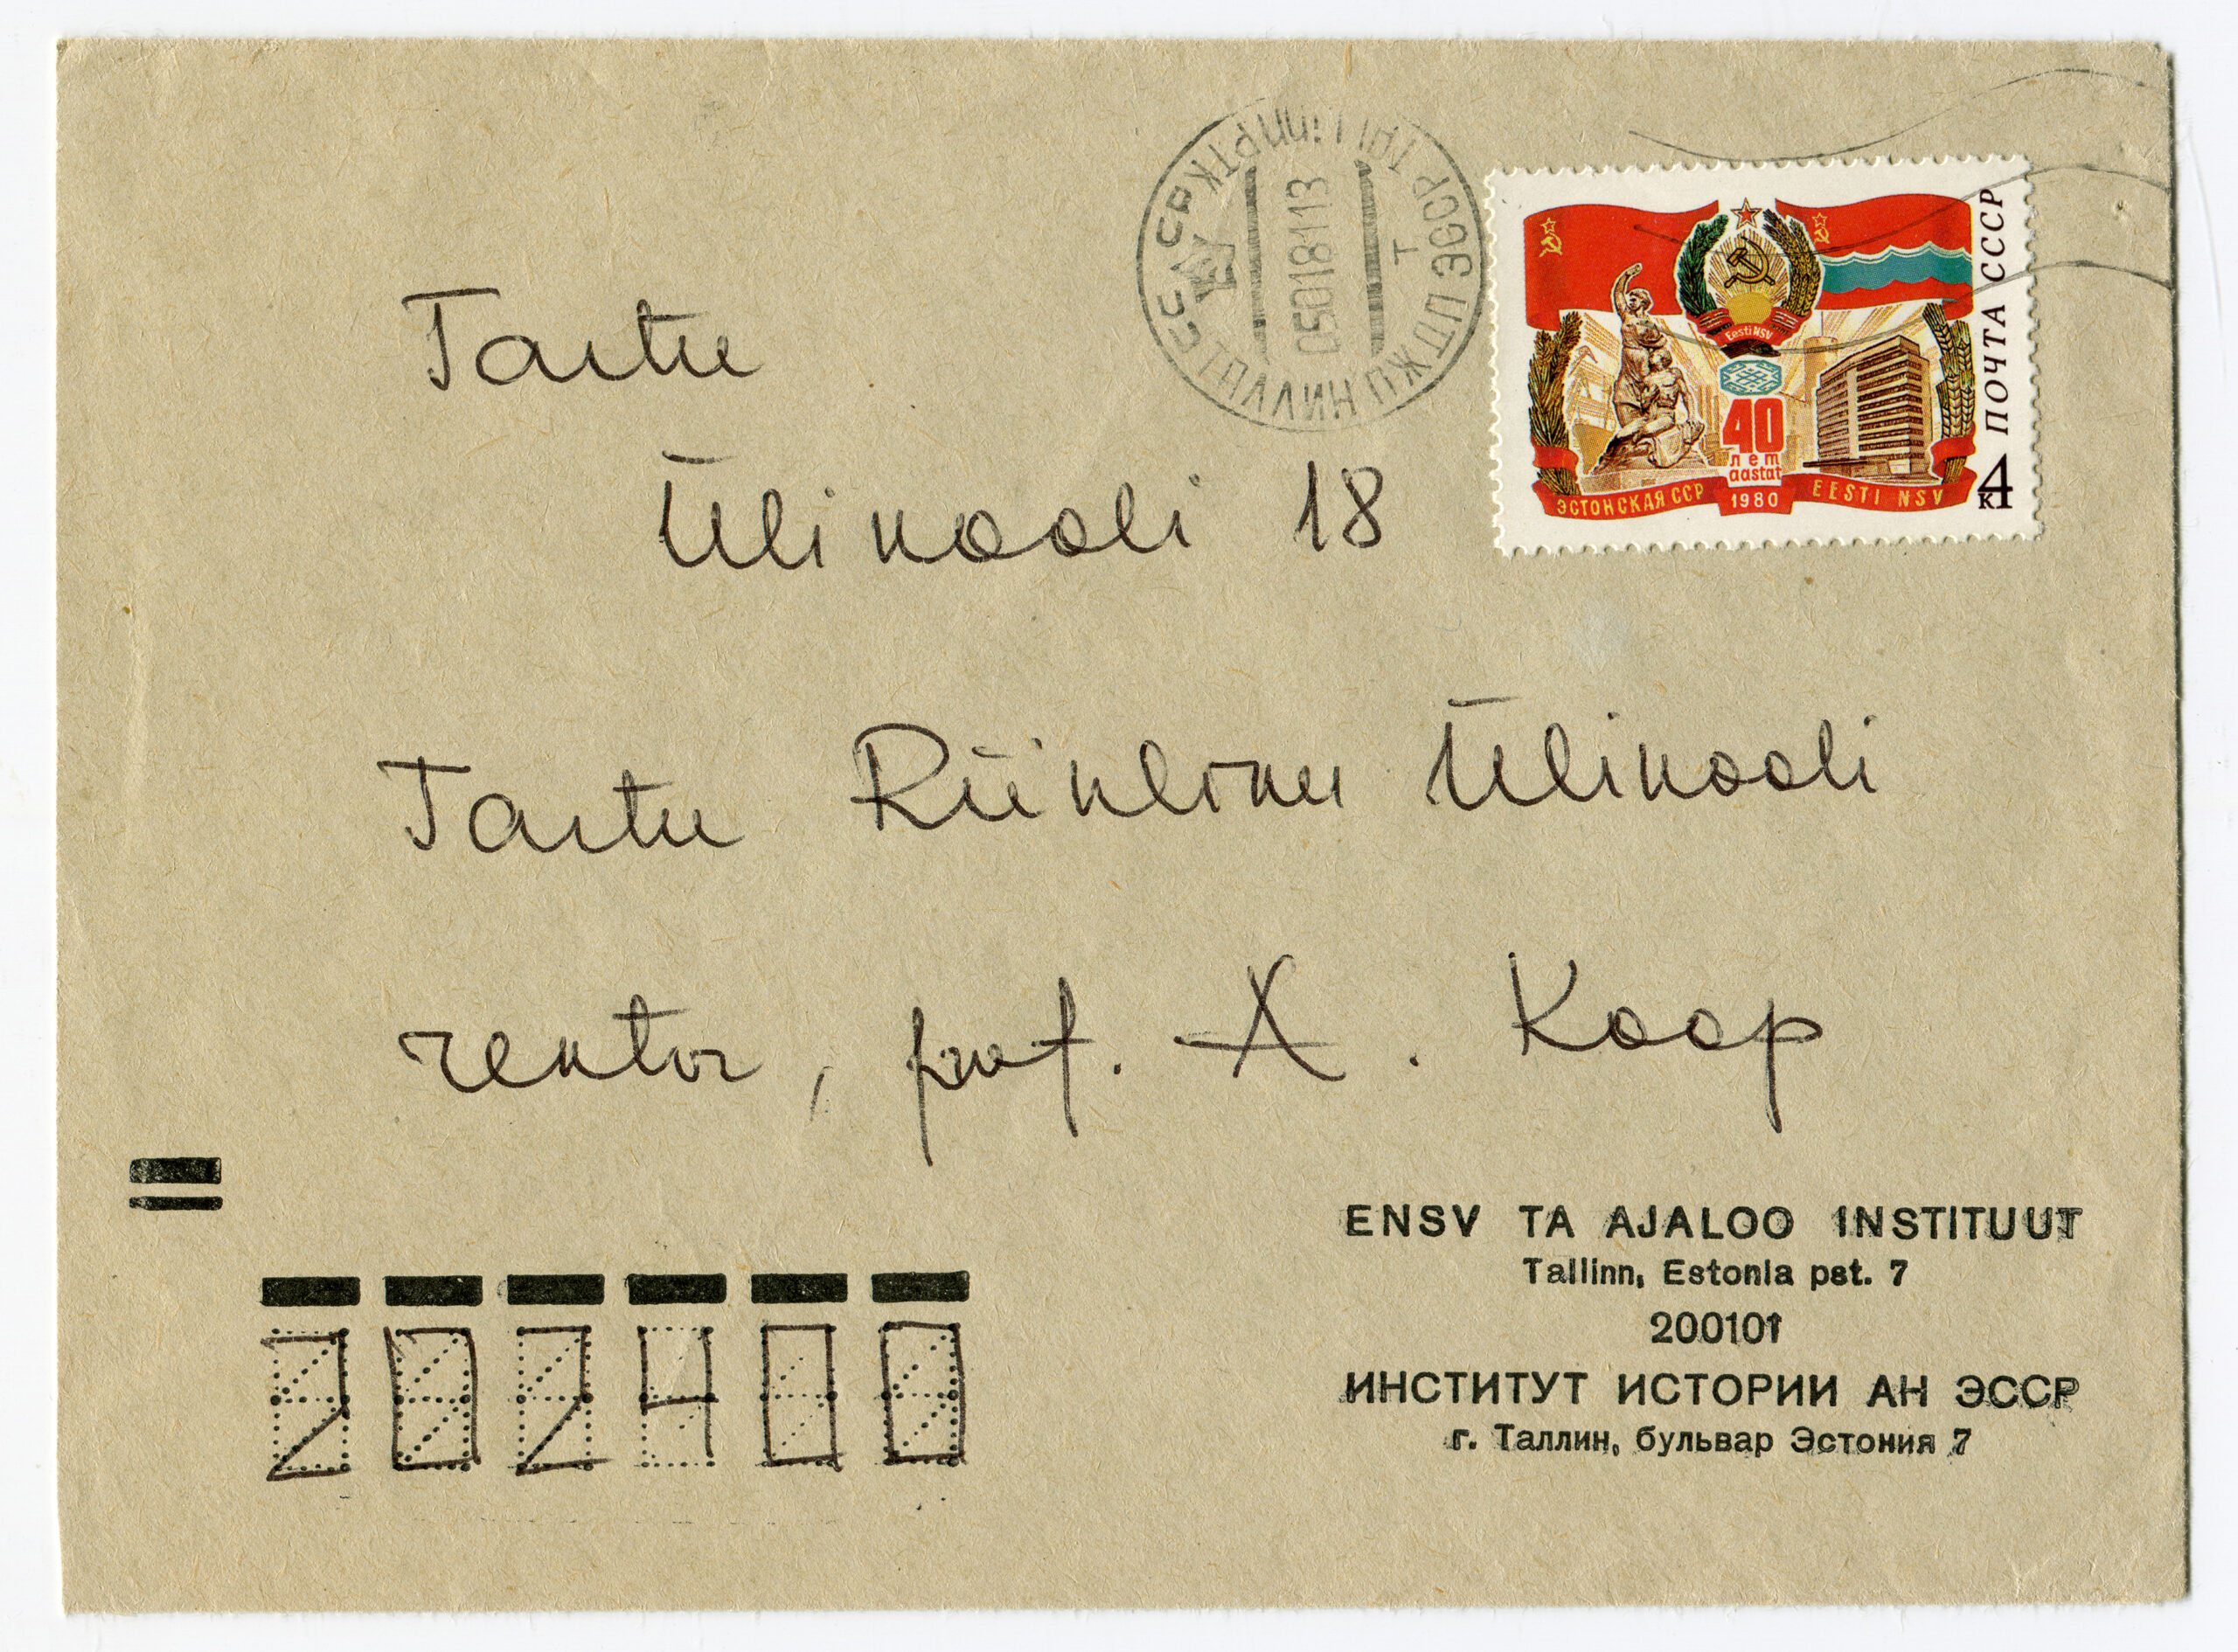 ТАЛЛИН ПЖДП ЭССР
Т
050181 13
ПОЧТА СССР
Eesti NSV
40
лет
aastat
ЭСТОНСКАЯ ССР 1980 EESTI NSV
4
к
Tartu
Ülikooli 18
Tartu Riikliku Ülikooli
rektor, prof. A. Koop
ENSV TA AJALOO INSTITUUT
Tallinn, Estonia pst. 7
200101
ИНСТИТУТ ИСТОРИИ АН ЭССР
г. Таллин, бульвар Эстония 7
202400